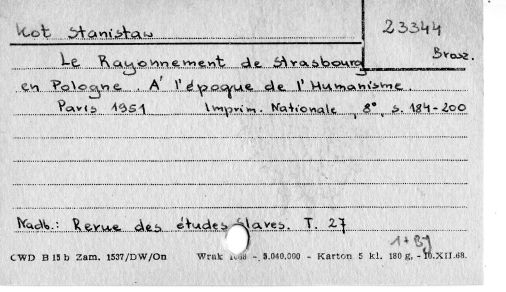 Kot Stanisław
23344
Brosz.
Le Rayonnement de Strasbourg
en Pologne. A' l'époque de l'Humanisme.
Paris 1951 Imprim. Nationale, 8°, s. 184-200
Nadb.: Revue des études slaves. T. 27
1+Bj
CWD B 15 b Zam. 1537/DW/On Wrak - 5.040.000 - Karton 5 kl. 180 g, - 10.XII.68.